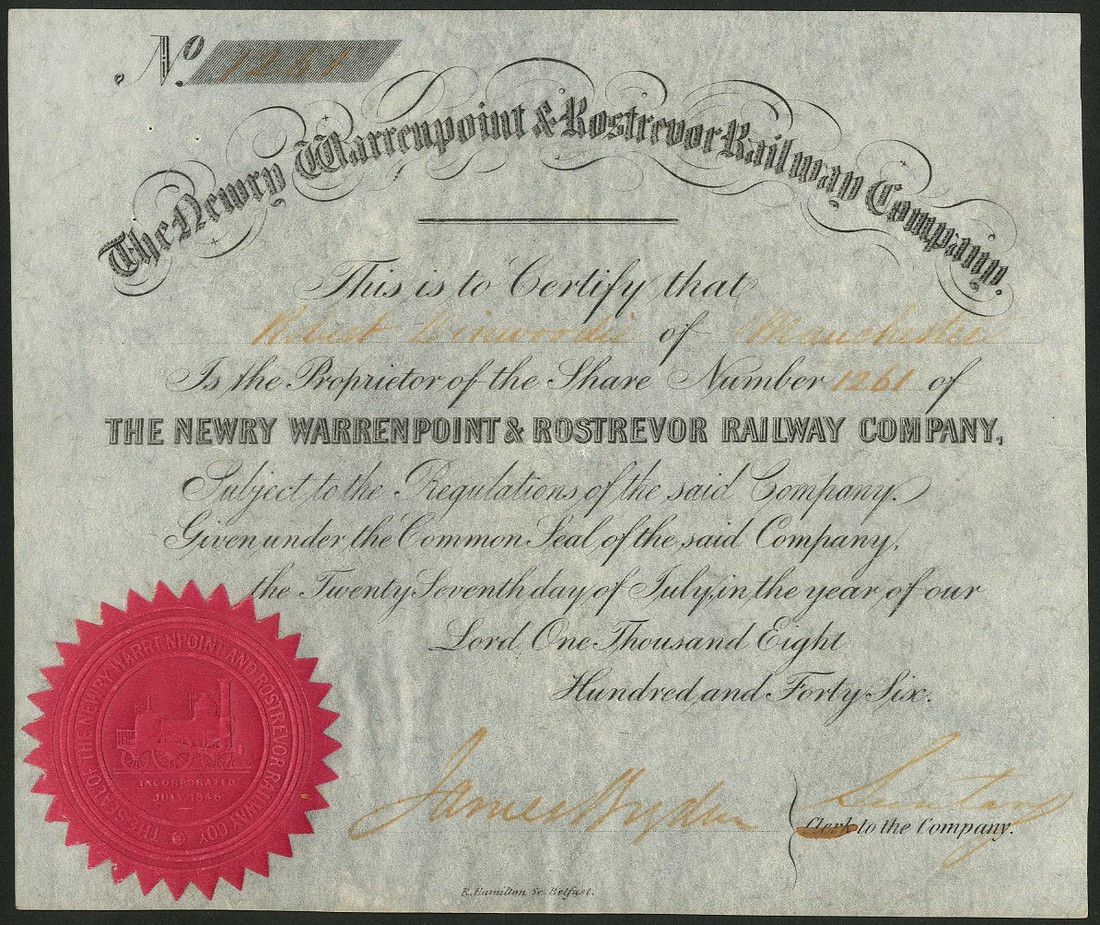 No. 1261
The Newry Warrenpoint & Rostrevor Railway Company.
This is to Certify that
Robert Dinwoodie of Manchester
Is the Proprietor of the Share Number 1261 of
THE NEWRY WARRENPOINT & ROSTREVOR RAILWAY COMPANY,
Subject to the Regulations of the said Company.
Given under the Common Seal of the said Company,
the Twenty Seventh day of July, in the year of our
Lord One Thousand Eight
Hundred and Forty Six.
THE SEAL OF THE NEWRY WARRENPOINT AND ROSTREVOR RAILWAY COY
INCORPORATED
JULY 1846
James
Clerk to the Company.
R. Hamilton Sc. Belfast.